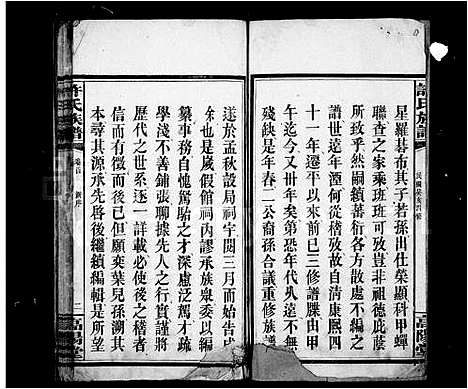 許氏族譜
民國乙亥四修
高陽堂
星羅碁布其子若孫出仕榮顯科甲蟬
聯查之家乘班班可攷豈非祖德庇蔭
所致乎然嗣續蕃衍各方散處不編之
譜世遠年湮何從稽攷故自清康熙四
十一年遷平以來前已三修譜牒由甲
午迄今又卅年矣弟恐年代久遠不無
殘缺是年春二公裔孫合議重修族譜
遂於孟秋設局祠宇閱三月而始告成
余也是歲假館祠內謬承族衆委以編
纂事務自愧駑駘之才深慮泛駕才疏
學淺不善鋪張聊據先人之行實謹將
歷代之世系逐一詳載必使後之人
信而有徵而後已但願奕葉兒孫溯其
本尋其源承先啓後繼續編輯是所望
許氏族譜
卷首
新序
二
高陽堂